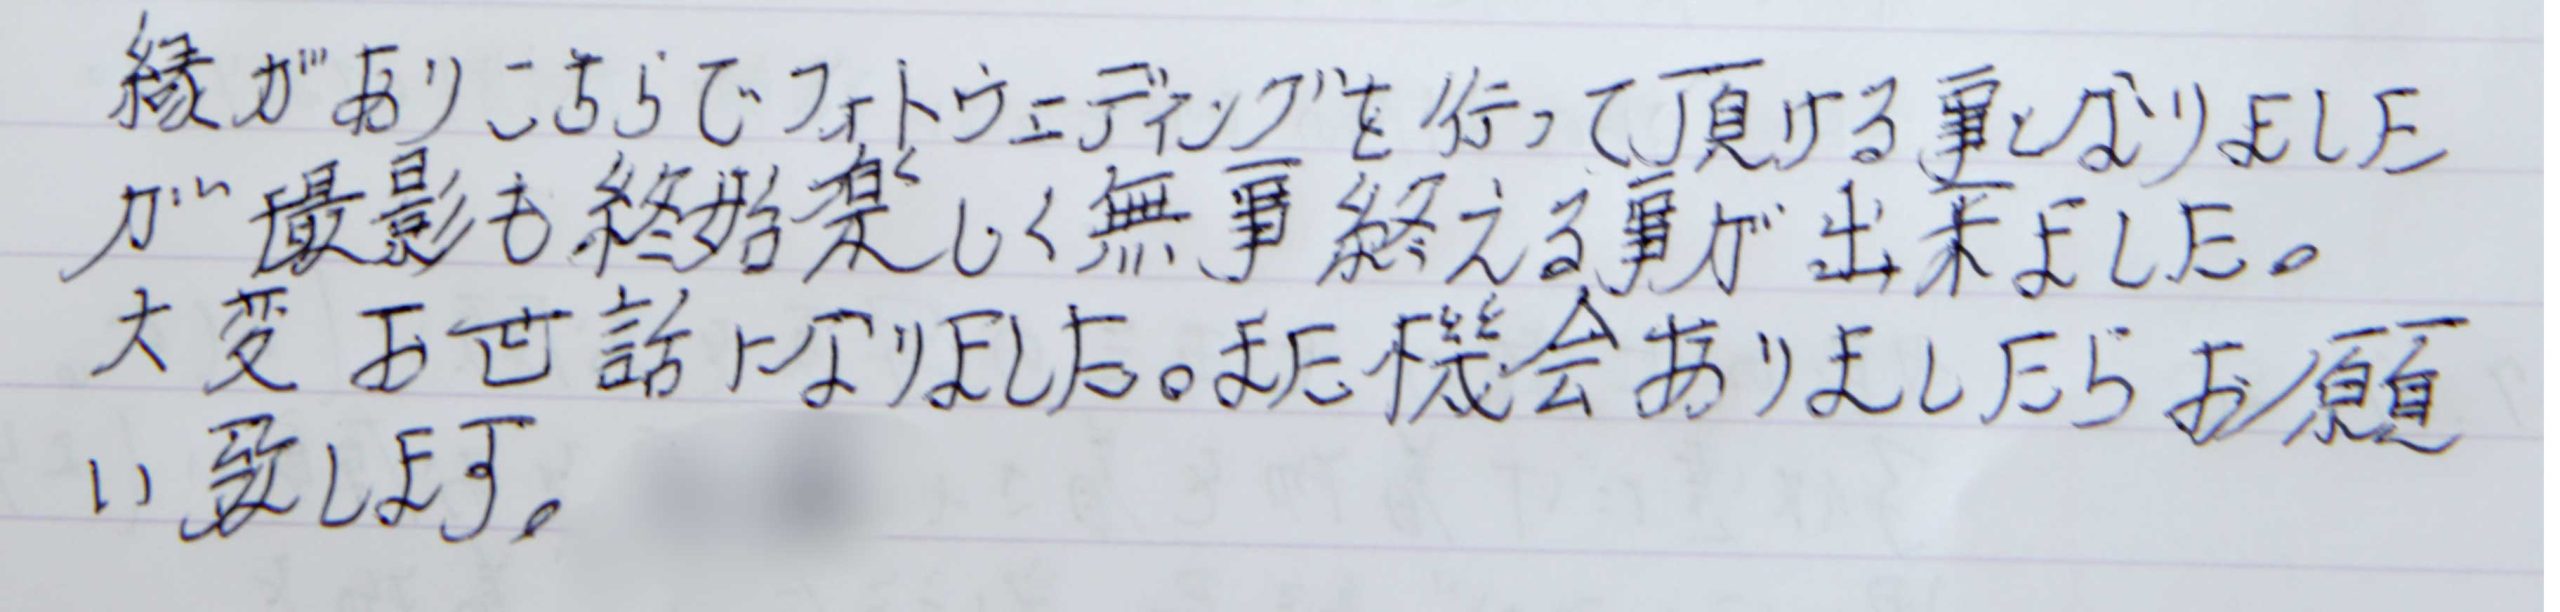 縁がありこちらでフォトウェディングを行って頂ける事となりました
が撮影も終始楽しく無事終える事が出来ました。
大変お世話になりました。また機会ありましたらお願
い致します。